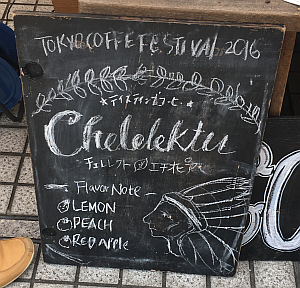 TOKYO COFFEE FESTIVAL 2016
★テイスティングコーヒー★
Chelelektu
チェレレクトゥ エチオピア
Flavor Note
LEMON
PEACH
RED Apple